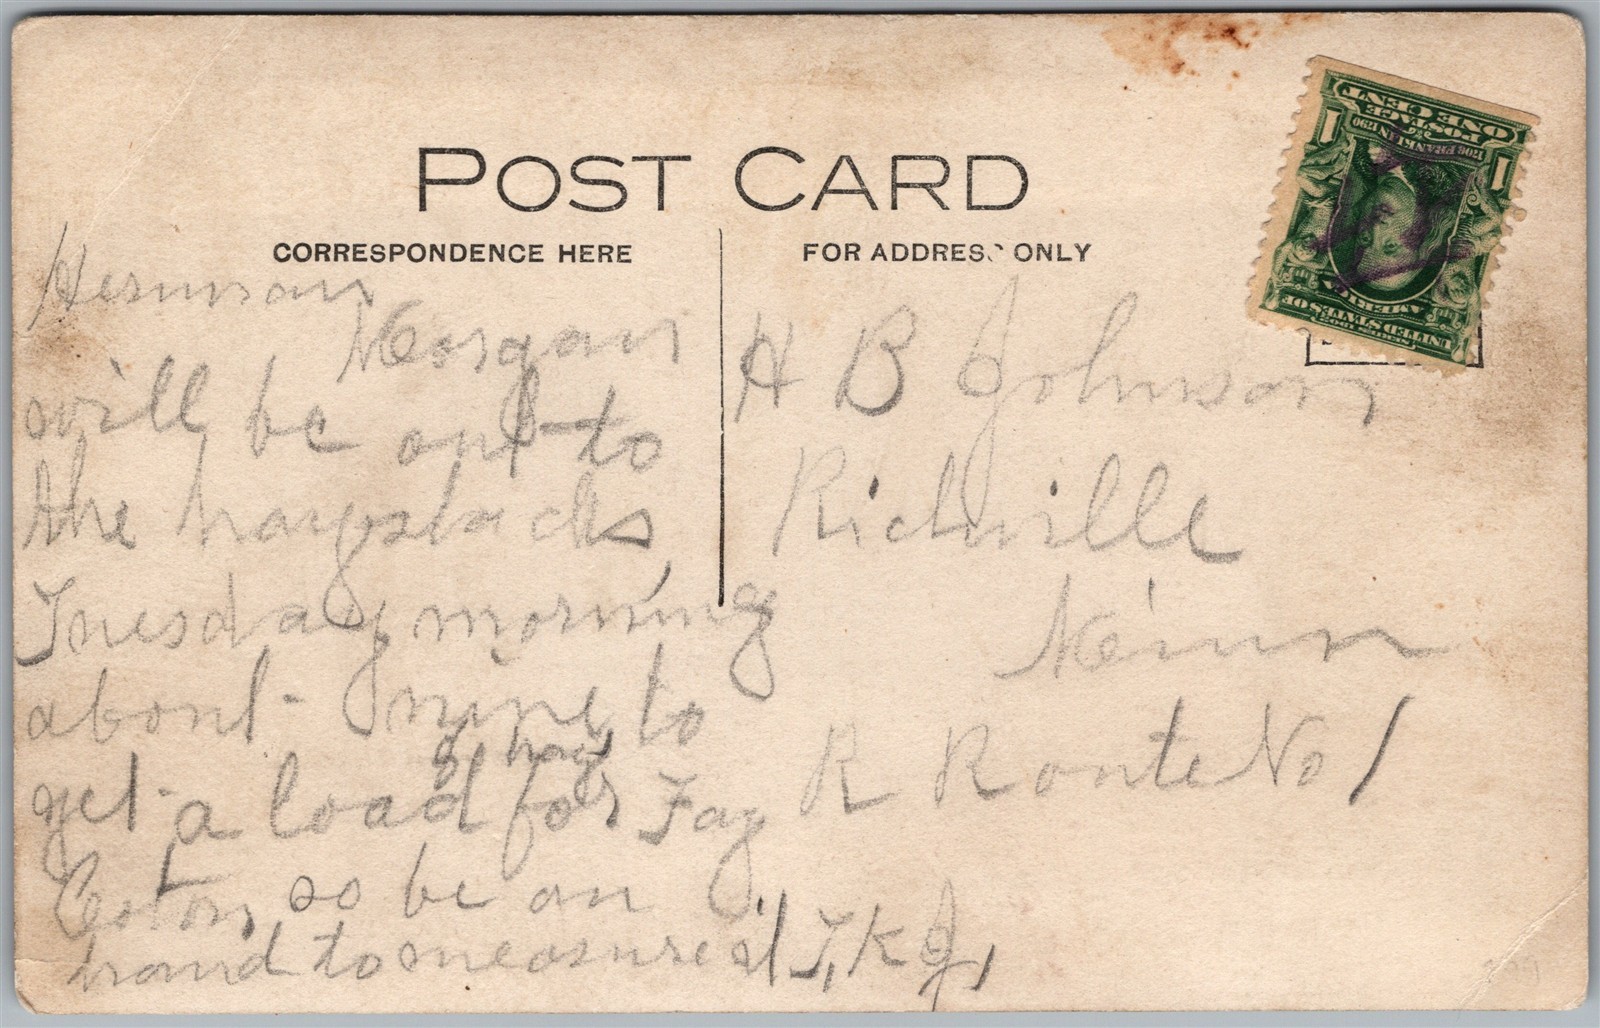 POST CARD
CORRESPONDENCE HERE
FOR ADDRESS ONLY
Herman
Morgan
will be out to
the haystacks
Tuesday morning
about nine to
of hay
get a load for Fay
so be on
hand to measure it
T, K J,
H B Johnson
Richville
Minn
R Route No 1
1 1
POSTAGE
ONE CENT
FRANKLIN 1790
SERIES 1902
UNITED STATES OF
AMERICA